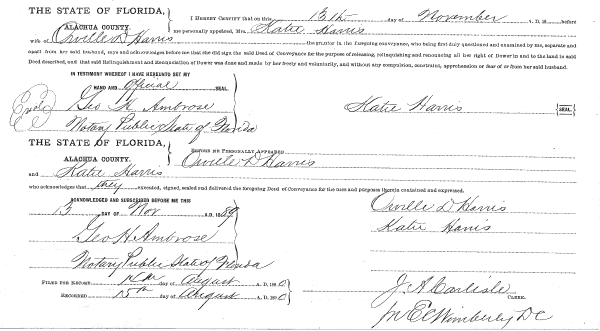 THE STATE OF FLORIDA,
ALACHUA COUNTY.
I HEREBY CERTIFY that on this 13th day of November A. D. 18 before
me personally appeared, Mrs. Katie Harris
wife of Orville D Harris the grantor in the foregoing conveyance, who being first duly questioned and examined by me, separate and
apart from her said husband, says and acknowledges before me that she did sign the said Deed of Conveyance for the purpose of releasing, relinquishing and renouncing all her right of Dower in and to the land in said
Deed described, and that said Relinquishment and Renunciation of Dower was done and made by her freely and voluntarily, and without any compulsion, constraint, apprehension or fear of or from her said husband.
IN TESTIMONY WHEREOF I HAVE HEREUNTO SET MY
HAND AND Official SEAL.
Geo H Ambrose
Katie Harris SEAL.
Notary Public State of Florida
THE STATE OF FLORIDA,
ALACHUA COUNTY.
BEFORE ME PERSONALLY APPEARED Orville D Harris
and Katie Harris
who acknowledges that they executed, signed, sealed and delivered the foregoing Deed of Conveyance for the uses and purposes therein contained and expressed.
ACKNOWLEDGED AND SUBSCRIBED BEFORE ME THIS
13 DAY OF Nov A. D. 1889
Orville D Harris
Katie Harris
Geo H. Ambrose
Notary Public State of Florida
FILED FOR RECORD day of August A. D. 1890
RECORDED 15th day of August A. D. 1890
J. A. Carlisle
CLERK.
Wimberly DC